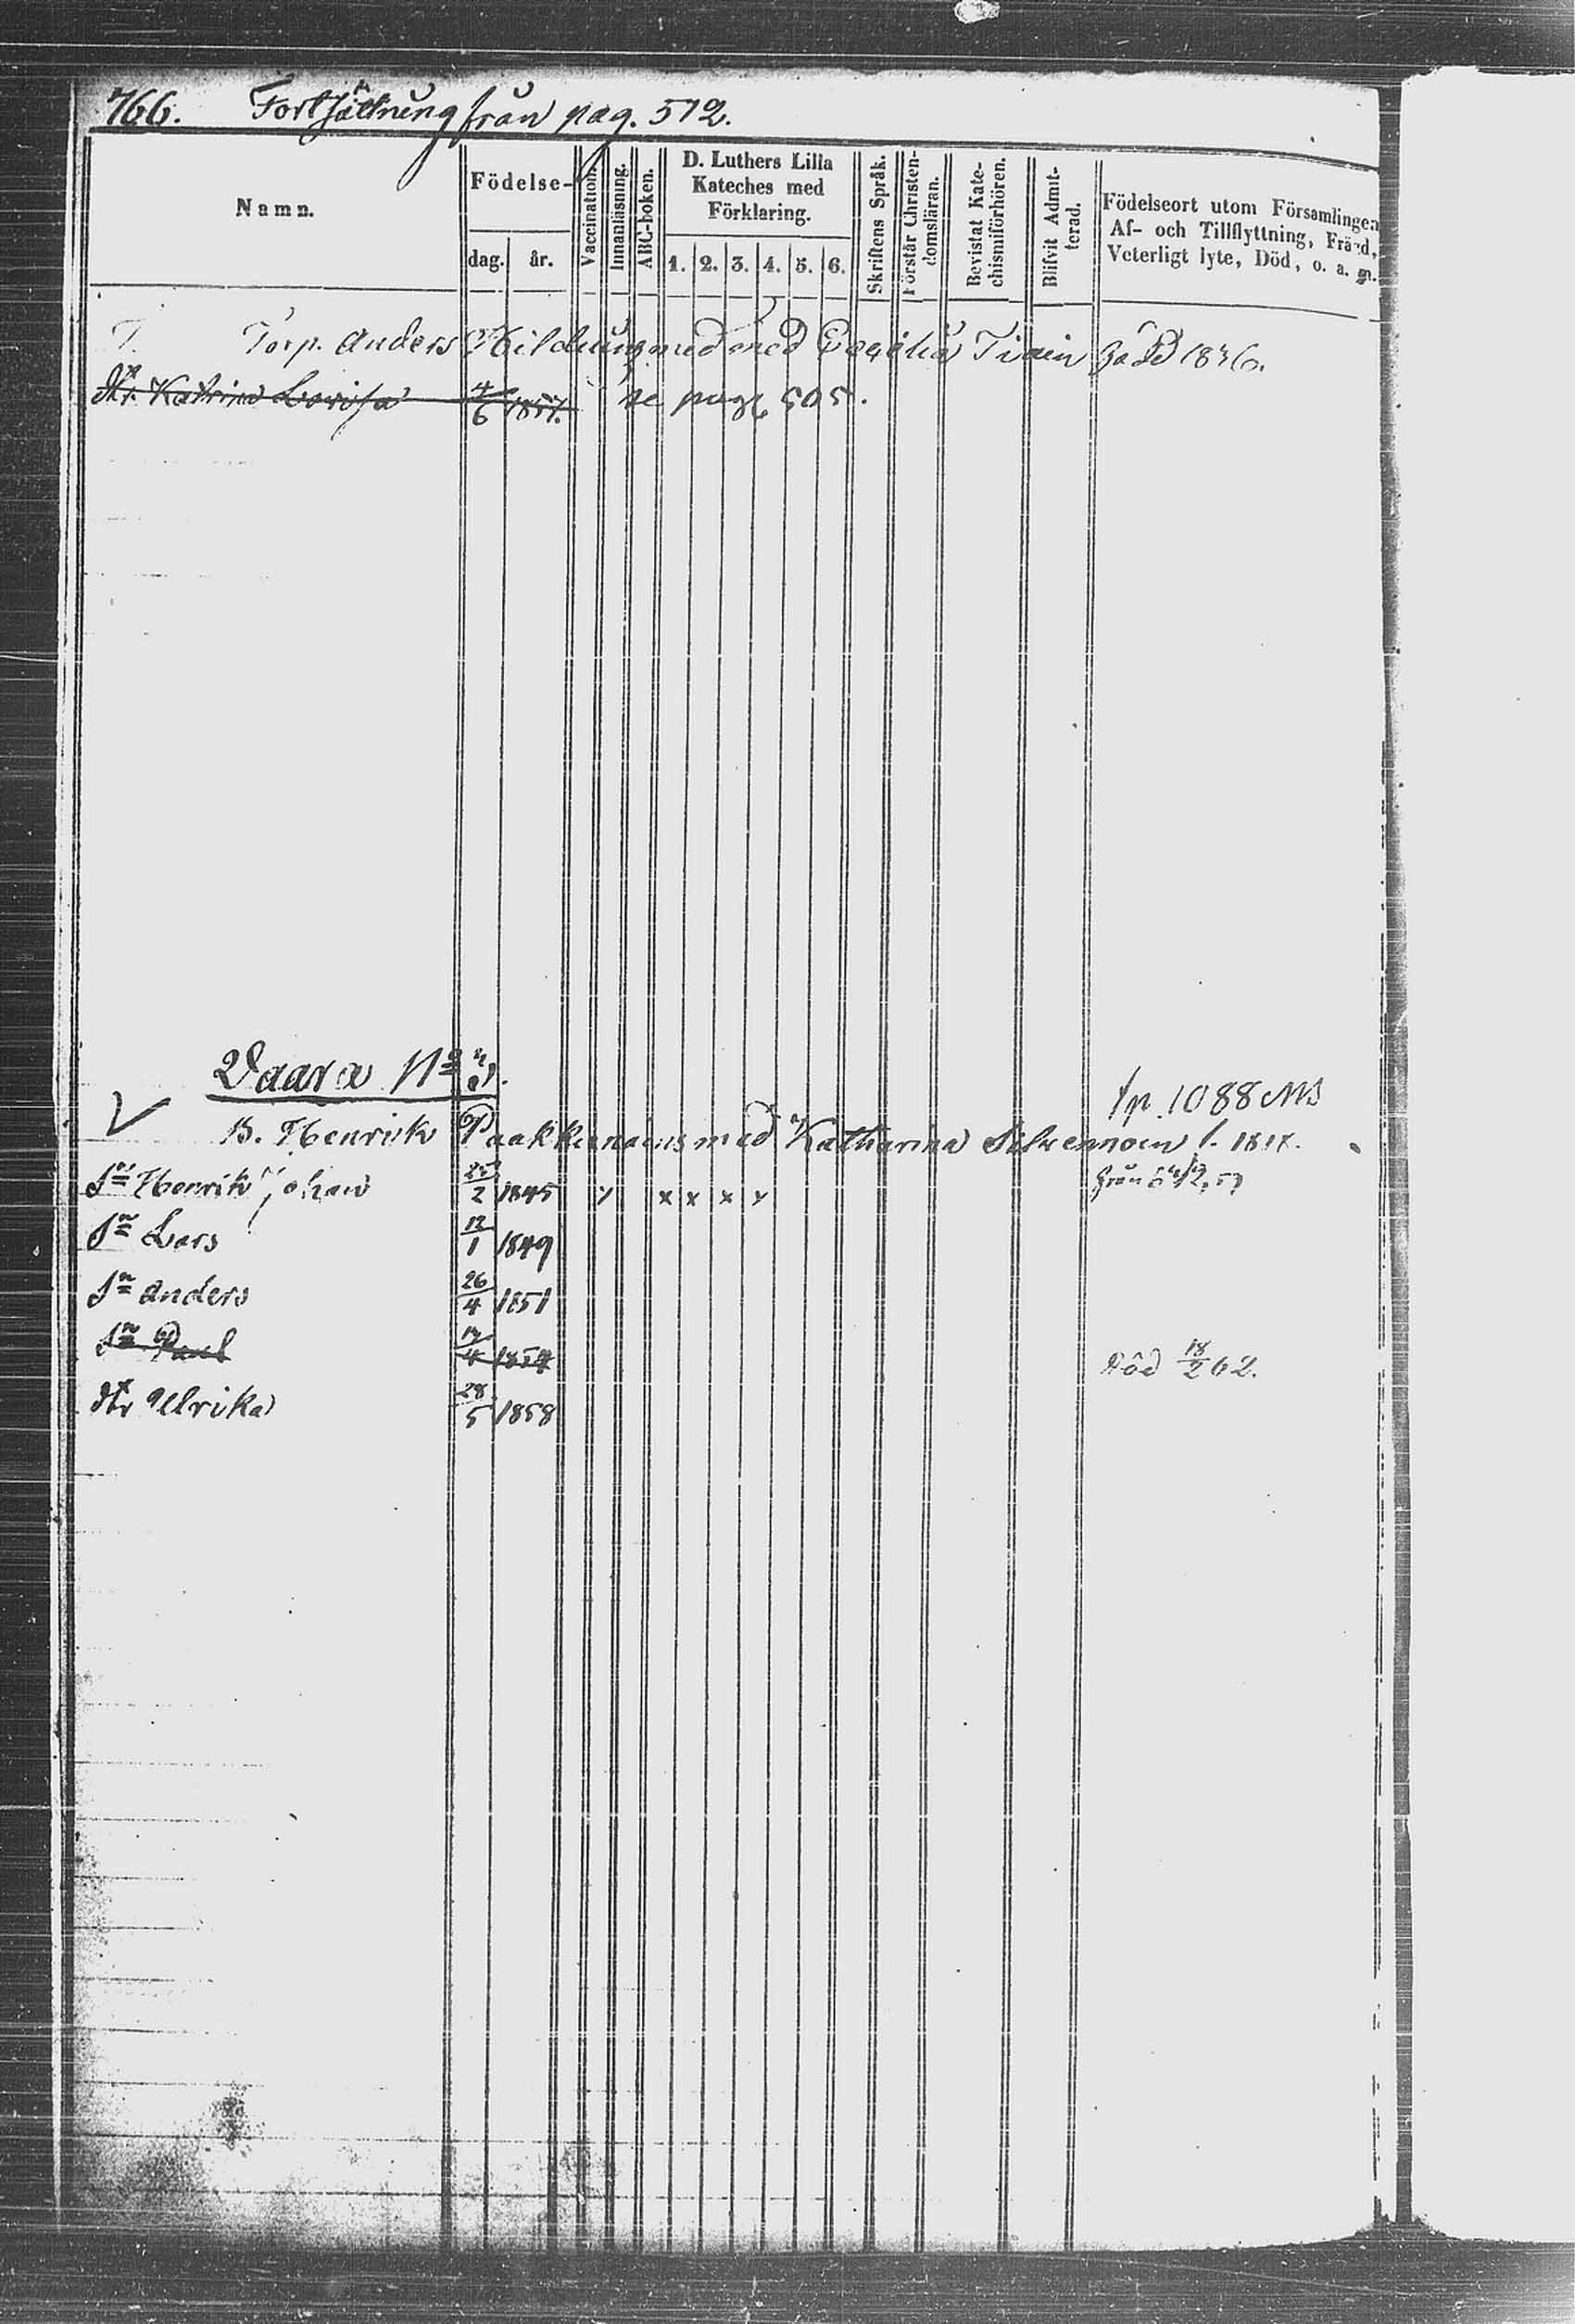 766. Fortsättning från pag. 512.
Namn.
Födelse-
dag.
år.
Vaccination.
Innanläsning.
ABC-boken.
D. Luthers Lilla
Kateches med
Förklaring.
1. 2. 3. 4. 5. 6.
Skriftens Språk.
Förstår Christen-
domsläran.
Bevistat Kate-
chismiförhören.
Blifvit Admit-
terad.
Födelseort utom Församlingen
Af- och Tillflyttning, Fräjd,
Veterligt lyte, Död, o. a. m.
Torp. Anders med
dtr. Katrina Lovisa 4/6 1857. se pag. 505.
Vaara No
/p. 1088 NB
B. Henrik Paakkunainens med Katharina
Sn Henrik Johan 25/2 1845 x x x x
Sn Lars 12/1 1849
Sn Anders 26/4 1851
Sn Paul 1854 Död 18/2 62.
dtr Ulrika 28/5 1858